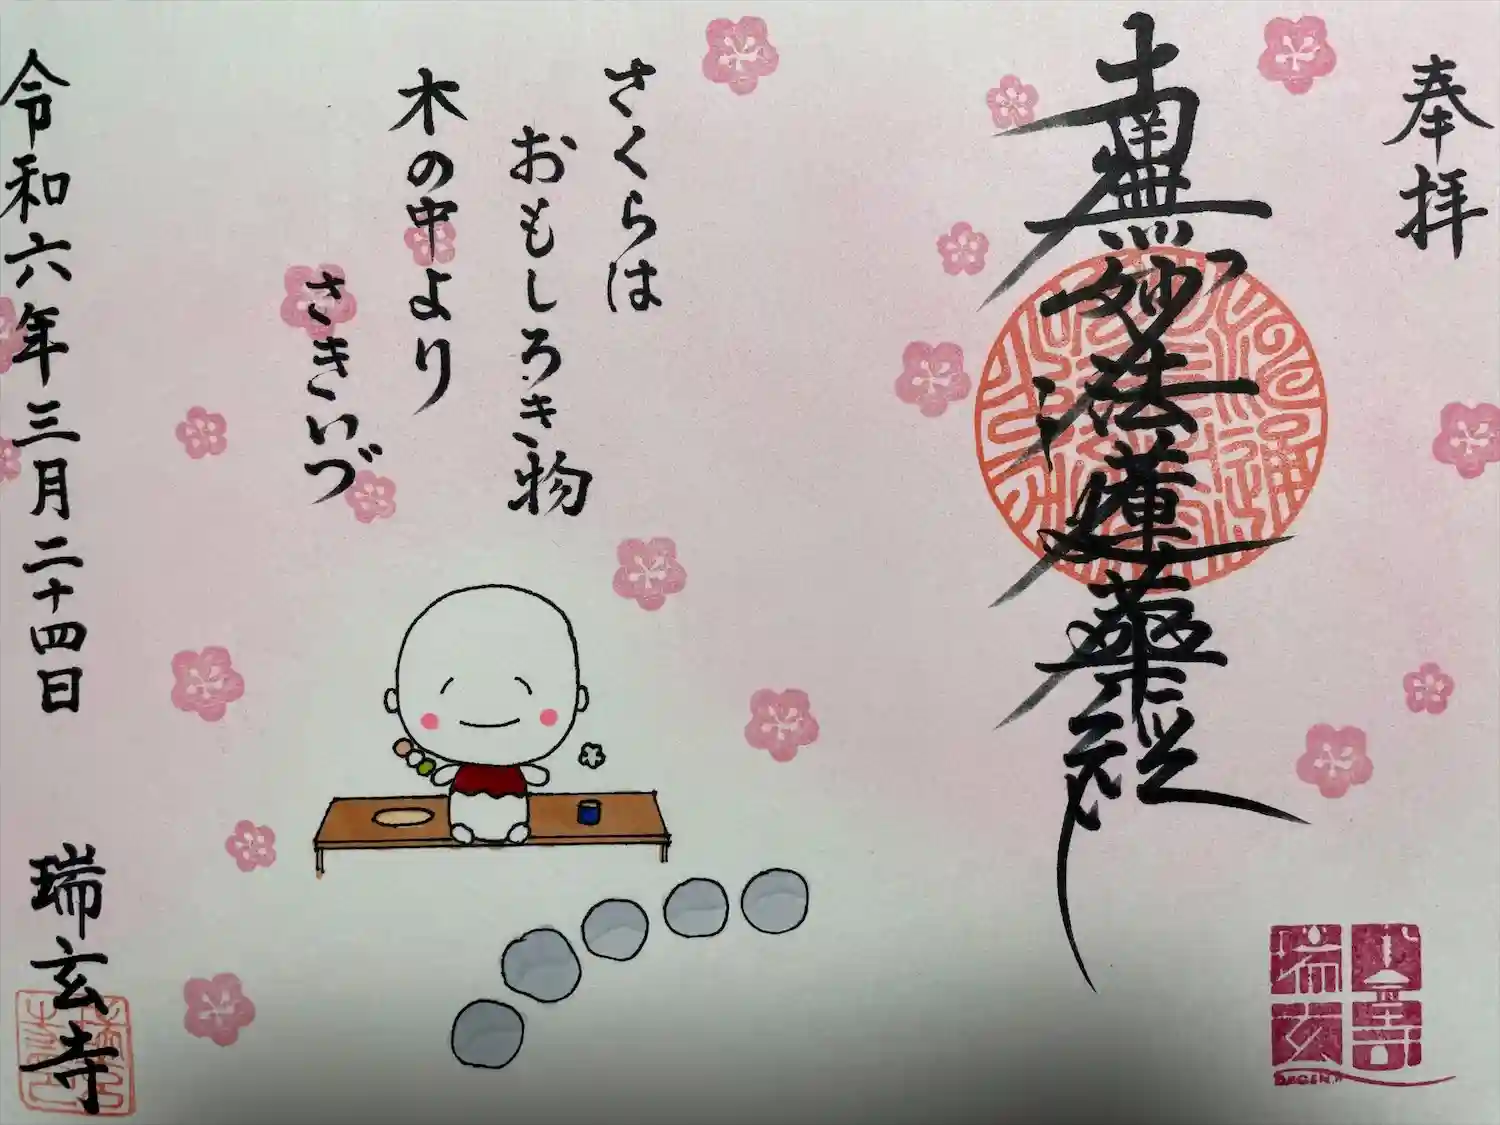 奉拝
南無妙法蓮華経
さくらは
おもしろき物
木の中より
さきいづ
令和六年三月二十四日
瑞玄寺